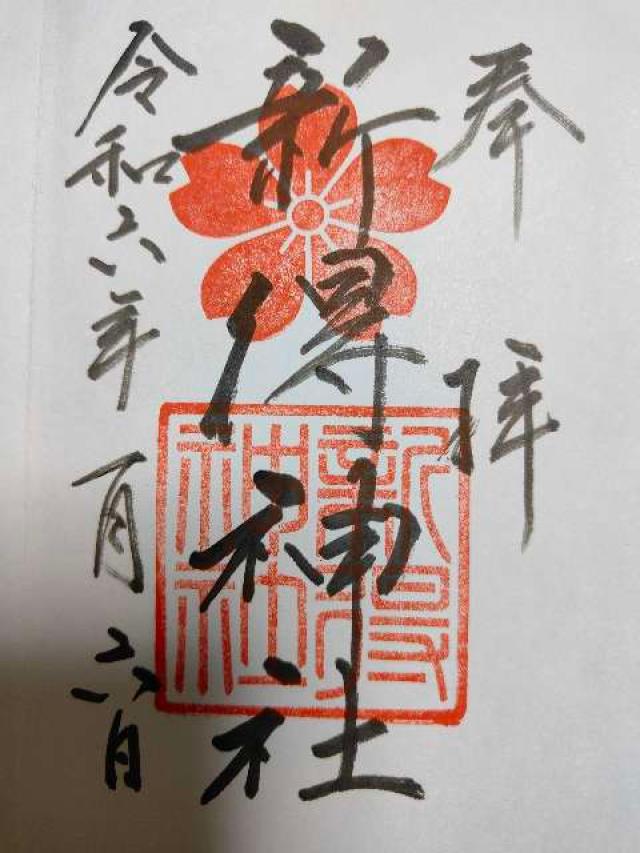 奉拝
新得神社
令和六年一月六日
新得
神社